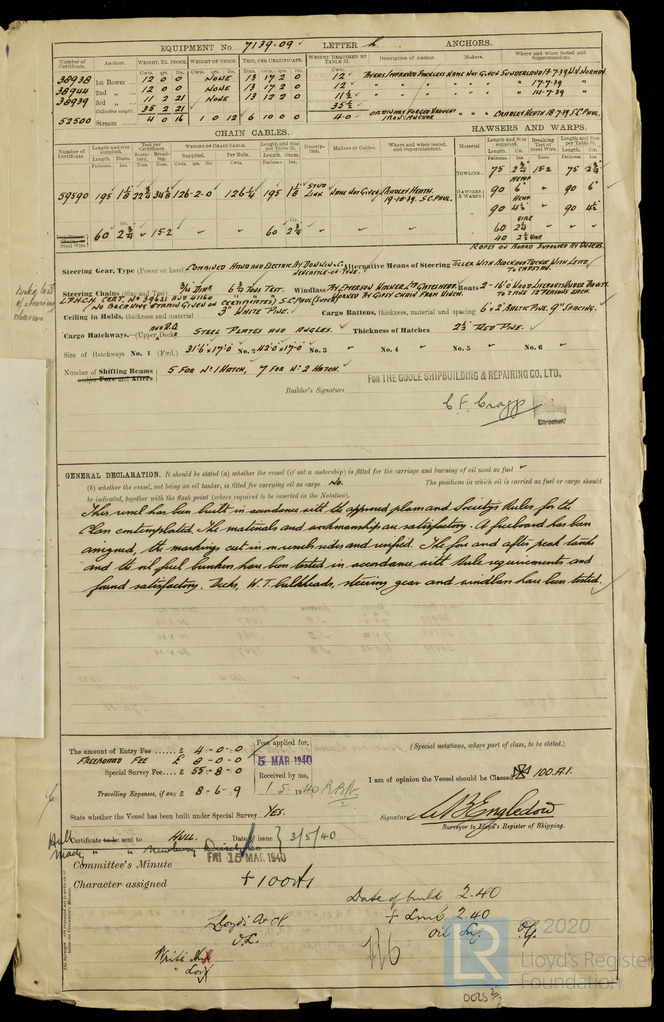 EQUIPMENT No. 7139.09 LETTER h. ANCHORS.
Number of Certificate. Anchors. WEIGHT, EX. STOCK. WEIGHT OF STOCK. TEST, PER CERTIFICATE. WEIGHT REQUIRED BY TABLE 53. Description of Anchor. Makers. Where and when tested and Superintendent.
Cwts. qrs. lbs. Cwts. qrs. lbs. Tons. cwts. qrs. lbs. Cwts.
38938 1st Bower 12 0 0 NONE 13 17 2 0 12 NAME NOT GIVEN SUNDERLAND
38944 2nd " 12 0 0 NONE 13 17 2 0 12 " " " " 17-7-39 "
38939 3rd " 11 2 21 NONE 13 12 2 0 11½ " " " " 14-7-39 "
Collective weight. 35 2 21 35½
52500 Stream 4 0 16 1 0 12 6 10 0 0 4.0 ORDINARY FORGED IRON ANCHOR CHARLES HEATH 18-7-39 S.C. PAUL.
CHAIN CABLES. HAWSERS AND WARPS.
Number of Certificate. Length and size supplied. Test per Certificate. WEIGHT OF CHAIN CABLE. Length and Size per Table 53. Description. Makers of Cables. Where and when tested, and Superintendent. Material Length and Size supplied. Breaking Test of Steel Wire. Length and Size per Table 53.
Length. Diam. Statutory. Breaking. Supplied. Per Rule. Length. Diam. Length. Cir. Length. Cir.
TOWLINE 75 2¾ 15.2 75 2¾
59590 195 126-2-0 126¼ 195 STUD LINK NONE NOT GIVEN. HEATH. 19-10-39. S.C. PAUL.
HAWSERS & WARPS HEMP
90 6" " 90 6"
HEMP
90 4½ " 90 4½
WIRE
60 2¼
40 2¼ WIRE
Steel Wire 60 2¾ " 15.2 60 2¾
ROPES ON BOARD SUPPLIED BY OWNERS.
Steering Gear, Type (Power or hand) COMBINED HAND AND ELECTRIC BY DONKIN & CO NEWCASTLE-ON-TYNE. Alternative Means of Steering TILLER WITH BLOCK AND TACKLE WITH LEAD TO CAPSTAN.
Steering Chains (Size and Test) ¾ DIAR 6¾ TONS TEST. Windlass BY EMERSON WALKER LTD GATESHEAD. Boats 2-16'0" WOOD LIFEBOATS UNDER DAVITS
L.P.H.C.H. CERT. NO 39621 AND 41160
NO BREAKING STRAIN GIVEN ON CERTIFICATES S.C. PAUL (SUPDT) WORKED BY GIPSY CHAIN FROM WINCH. TO TAKE 12 PERSONS EACH.
Ceiling in Holds, thickness and material 3" WHITE PINE. Cargo Battens, thickness, material and spacing 6"x2" ARCTIC PINE. 9" SPACING.
Cargo Hatchways.—(Upper Decks AND R.Q.) STEEL PLATES AND ANGLES. Thickness of Hatches 2½" RED PINE.
Size of Hatchways No. 1 (Fwd.) 31'6"x17'0" No. 2 42'0"x17'0" No. 3 No. 4 No. 5 No. 6
Number of Shifting Beams and/or Fore and Afters 5 FOR No 1 HATCH, 7 FOR No 2 HATCH.
FOR THE GOOLE SHIPBUILDING & REPAIRING CO. LTD.
Builder's Signature
C F Cragg
Director.
GENERAL DECLARATION. It should be stated (a) whether the vessel (if not a motorship) is fitted for the carriage and burning of oil used as fuel
(b) whether the vessel, not being an oil tanker, is fitted for carrying oil as cargo No. The positions in which oil is carried as fuel or cargo should
be indicated, together with the flash point (where required to be inserted in the Notation).
This vessel has been built in accordance with the approved plans and Society's Rules for the
Class contemplated. The materials and workmanship are satisfactory. A freeboard has been
assigned, the markings cut in on vessels sides and verified. The fore and after peak tanks
and the oil fuel bunkers have been tested in accordance with Rule requirements and
found satisfactory. Decks, W.T. bulkheads, steering gear and windlass have been tested.
The amount of Entry Fee £ 4-0-0
FREEBOARD FEE £ 8-0-0
Special Survey Fee £ 55-8-0
Travelling Expenses, if any £ 8-6-9
Fees applied for,
5 MAR 1940
Received by me,
1 5 1940
(Special notations, where part of class, to be stated.)
I am of opinion the Vessel should be Classed ✠ 100.A.1.
State whether the Vessel has been built under Special Survey YES.
Signature A B Engledow
Surveyor to Lloyd's Register of Shipping.
Hull Certificate to be sent to HULL. Date of issue 3/5/40
Machy " "
FRI 15 MAR 1940
Committee's Minute
Character assigned + 100A1
Date of build 2.40
Lloyd's A & C P. + Lmc 2.40
O.L. Oil Eng.
Write Hull
" Lon
© 2020
LR
Lloyd's Register
Foundation